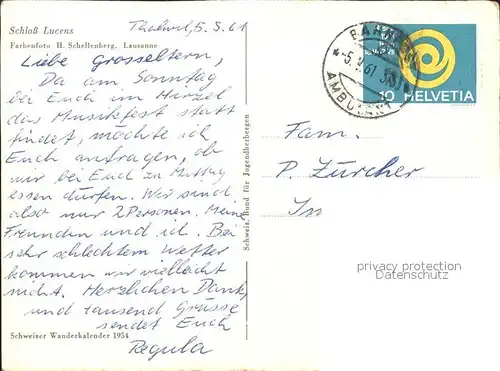 Schloß Lucens
Thalwil, 5.5.61
Farbenfoto H. Schellenberg, Lausanne
Liebe Grosseltern,
Da am Sonntag
bei Euch im Hirzel
das Musikfest statt
findet, möchte ich
Euch anfragen, ob
wir bei Euch zu Mittag
essen dürfen. Wir sind
also nur 2 Personen. Meine
Freundin und ich. Bei
sehr schlechtem Wetter
kommen wir vielleicht
nicht. Herzlichen Dank,
und tausend Grüsse
sendet Euch
Regula
Schweizer Wanderkalender 1954
Schweiz. Bund für Jugendherbergen
AMBULANT
10 HELVETIA
Fam.
P. Zürcher
privacy protection
Datenschutz